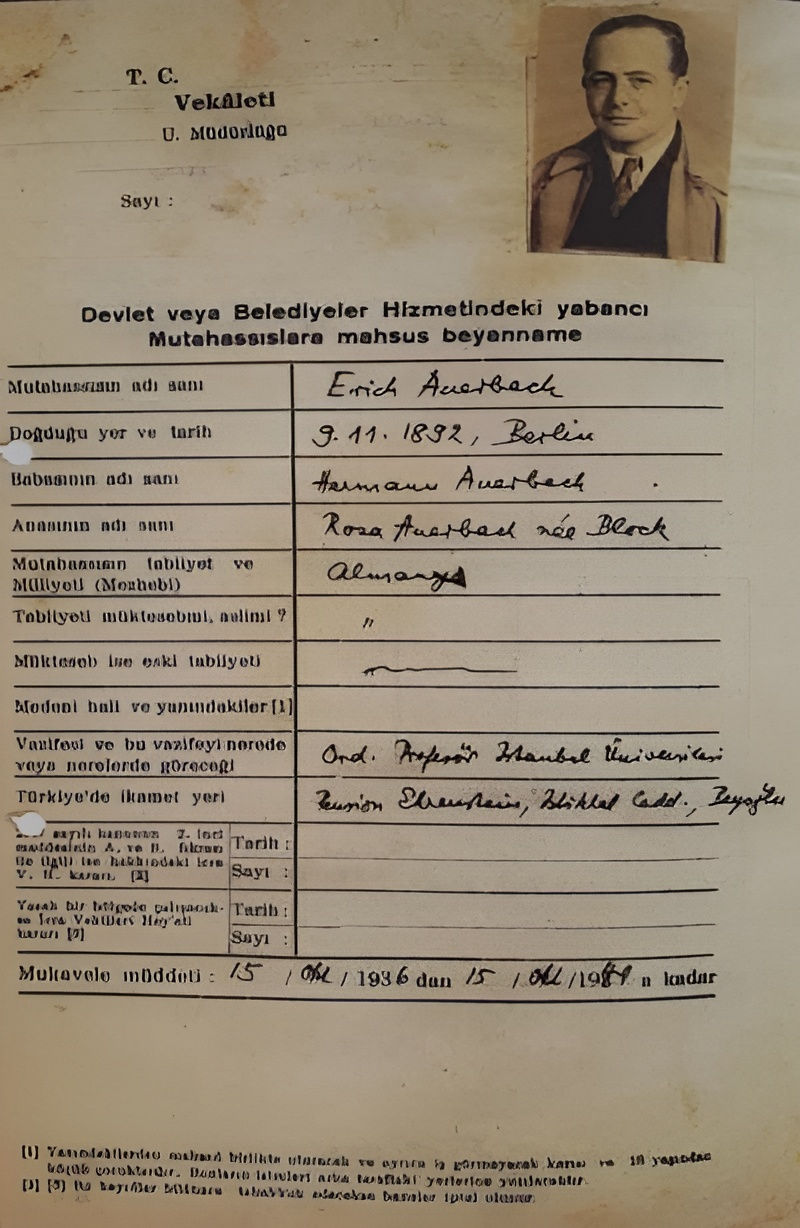 T. C.
Vekâleti
U. Müdürlüğü
Sayı :
Devlet veya Belediyeler Hizmetindeki yabancı
Mutahassıslara mahsus beyanname
Mutahassısın adı sanı Erich Auerbach
Doğduğu yer ve tarih 9. 11. 1892, Berlin
Babasının adı sanı Hermann Auerbach
Anasının adı sanı Rosa Auerbach née Block
Mutahassısın tabiiyet ve
Milliyeti (Mezhebi) Almanya
Tabiiyeti müktesebmi, aslimi ? "
Müktaseb ise eski tabiiyeti
Medeni hali ve yanındakiler [1]
Vazifesi ve bu vazifeyi nerede
veya nerelerde göreceği Ord. Profesör Istanbul Üniversitesi
Türkiye'de ikamet yeri Pension Ehrenstein, Istiklal Cadd., Beyoğlu
sayılı kanunun 7. inci
maddesinin A. ve B. fıkrası
ile ilgili ise hakkındaki İcra
V. H. kararı. [2]
Tarih :
Sayı :
Yasak bir bölgede çalışacak-
sa İcra Vekilleri Hey'eti
kararı [3]
Tarih :
Sayı :
Mukavele müddeti : 15 / Okt / 1936 dan 15 / Okt /19 a kadar
[1] birlikte oturacak ve ayrıca iş görmeyecek karısı ve 18 yaşından
küçük çocuklarıdır. Bunların isimleri arka taraftaki yerlerine yazılacaktır.
[2] [3] Bu kayıtlar